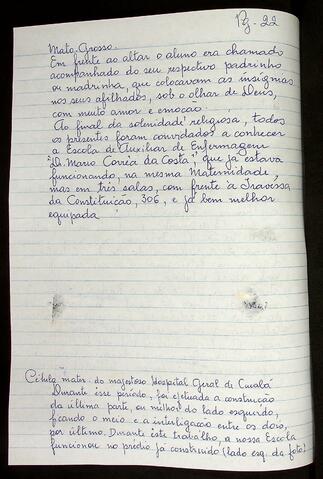 Pg. 22
Mato Grosso.
Em frente ao altar o aluno era chamado
acompanhado do seu respectivo padrinho
ou madrinha, que colocavam as insígnias
nos seus afilhados, sob o olhar de Deus,
com muito amor e emoção.
Ao final da solenidade religiosa, todos
os presentes foram convidados a conhecer
a Escola de Auxiliar de Enfermagem
"Dr. Mario Corrêa da Costa", que já estava
funcionando, na mesma Maternidade,
mas em três salas, com frente à Travessa
da Constituição, 306, e já bem melhor
equipada
do majestoso Hospital Geral de Cuiabá
Durante esse período, foi efetuada a construção
da última parte, ou melhor do lado esquerdo,
ficando o meio e a interligação entre os dois,
por último. Durante êste trabalho, a nossa Escola
funcionou no prédio já construído (lado esq. da foto)